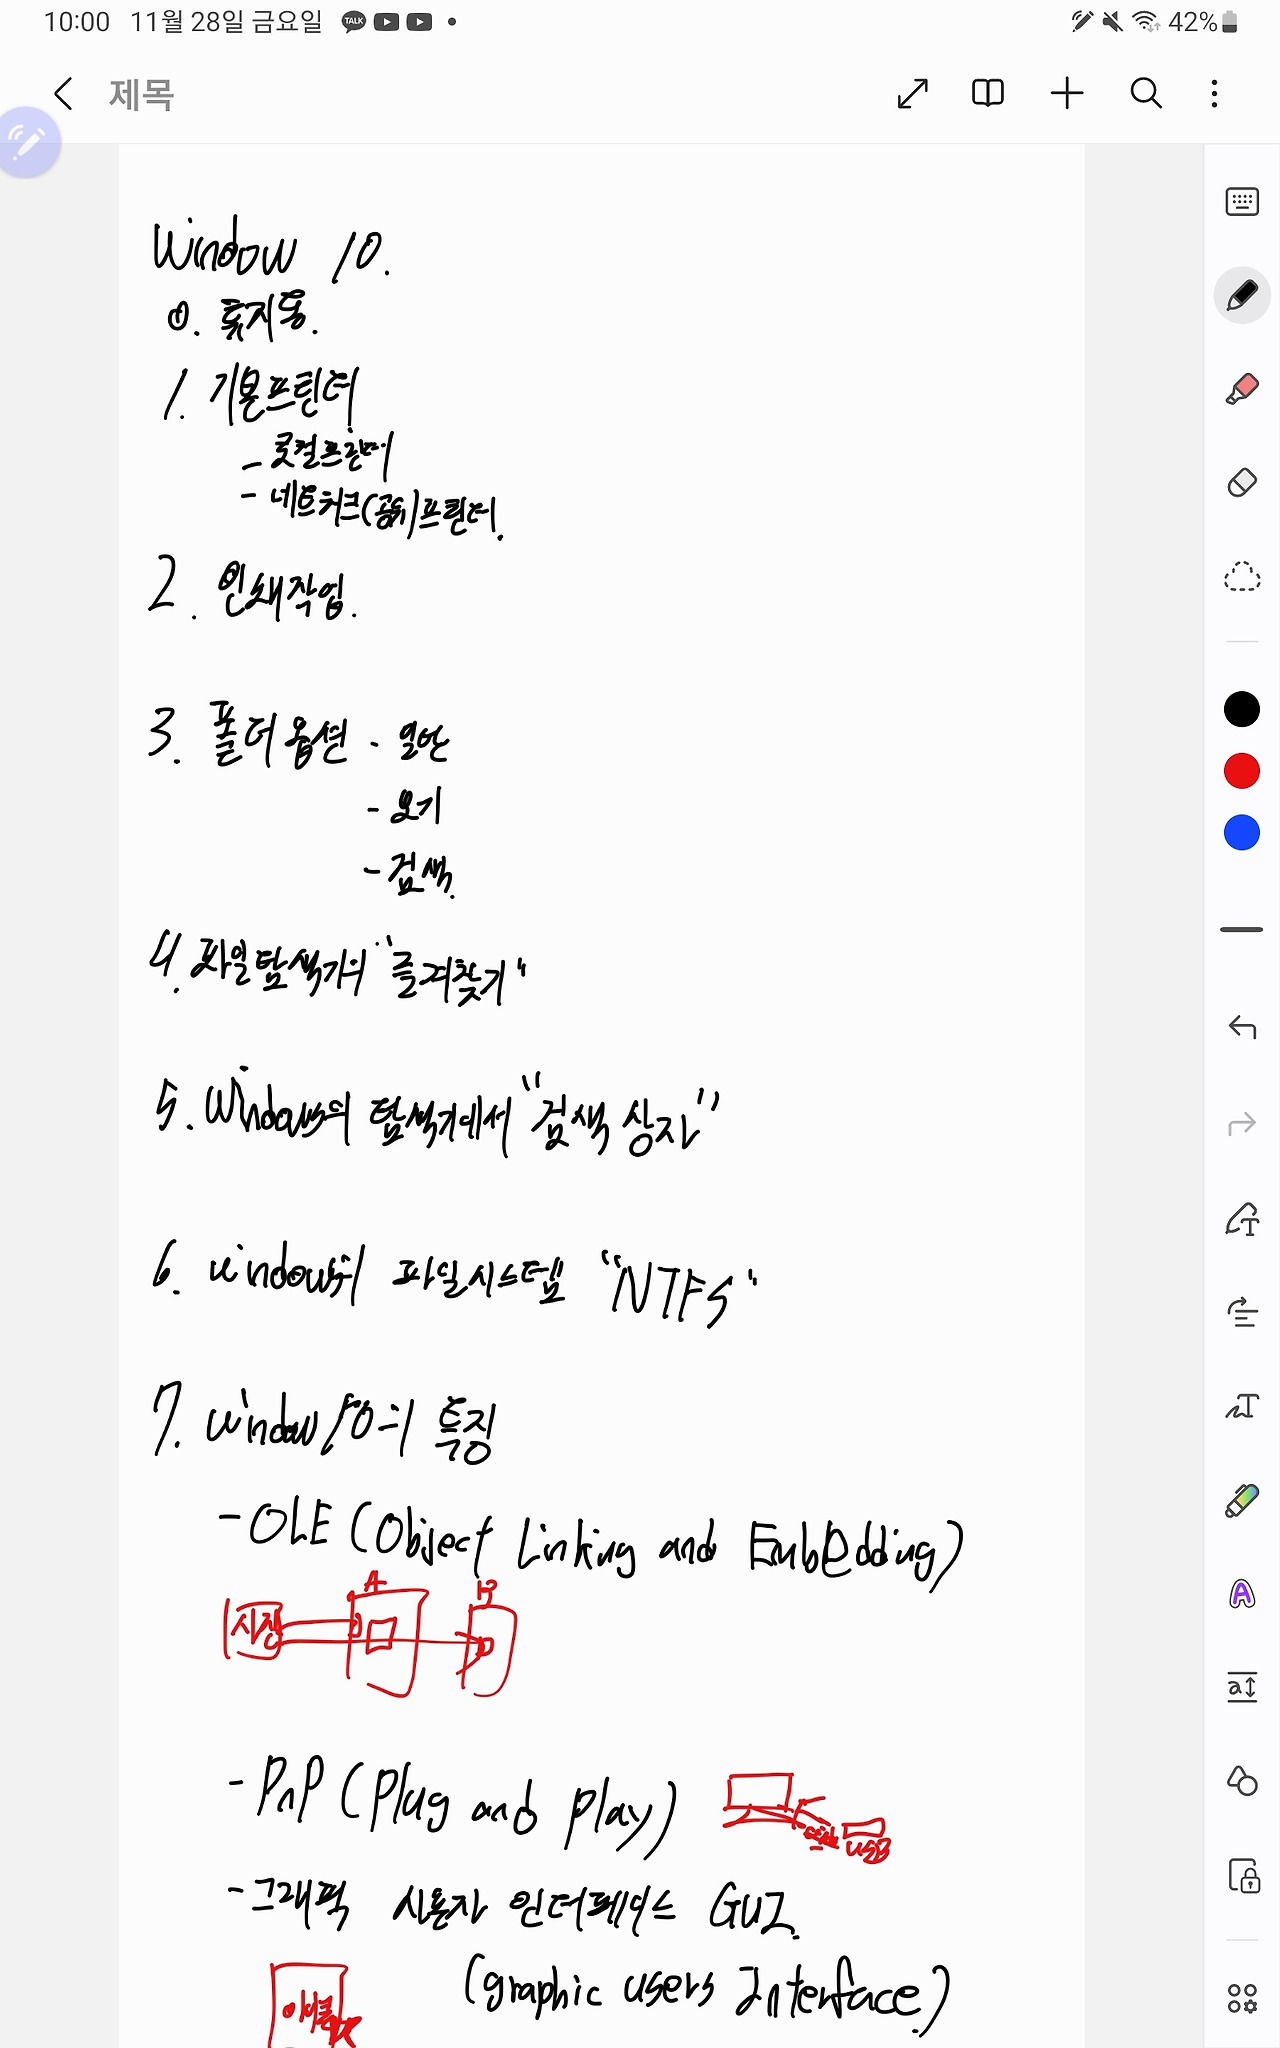 10:00 11월 28일 금요일 TALK 42%
제목
Window 10.
0. 휴지통.
1. 기본프린터
- 로컬프린터
- 네트워크(공유)프린터.
2. 인쇄작업.
3. 폴더옵션 - 일반
- 보기
- 검색.
4. 파일탐색기의 "즐겨찾기"
5. Windows의 탐색기에서 "검색 상자"
6. windows의 파일시스템 "NTFS"
7. window10의 특징
- OLE (Object Linking and Embedding)
A B
사진
- PnP (Plug and play)
USB
- 그래픽 사용자 인터페이스 GUI.
(graphic users Interface.)
아이콘